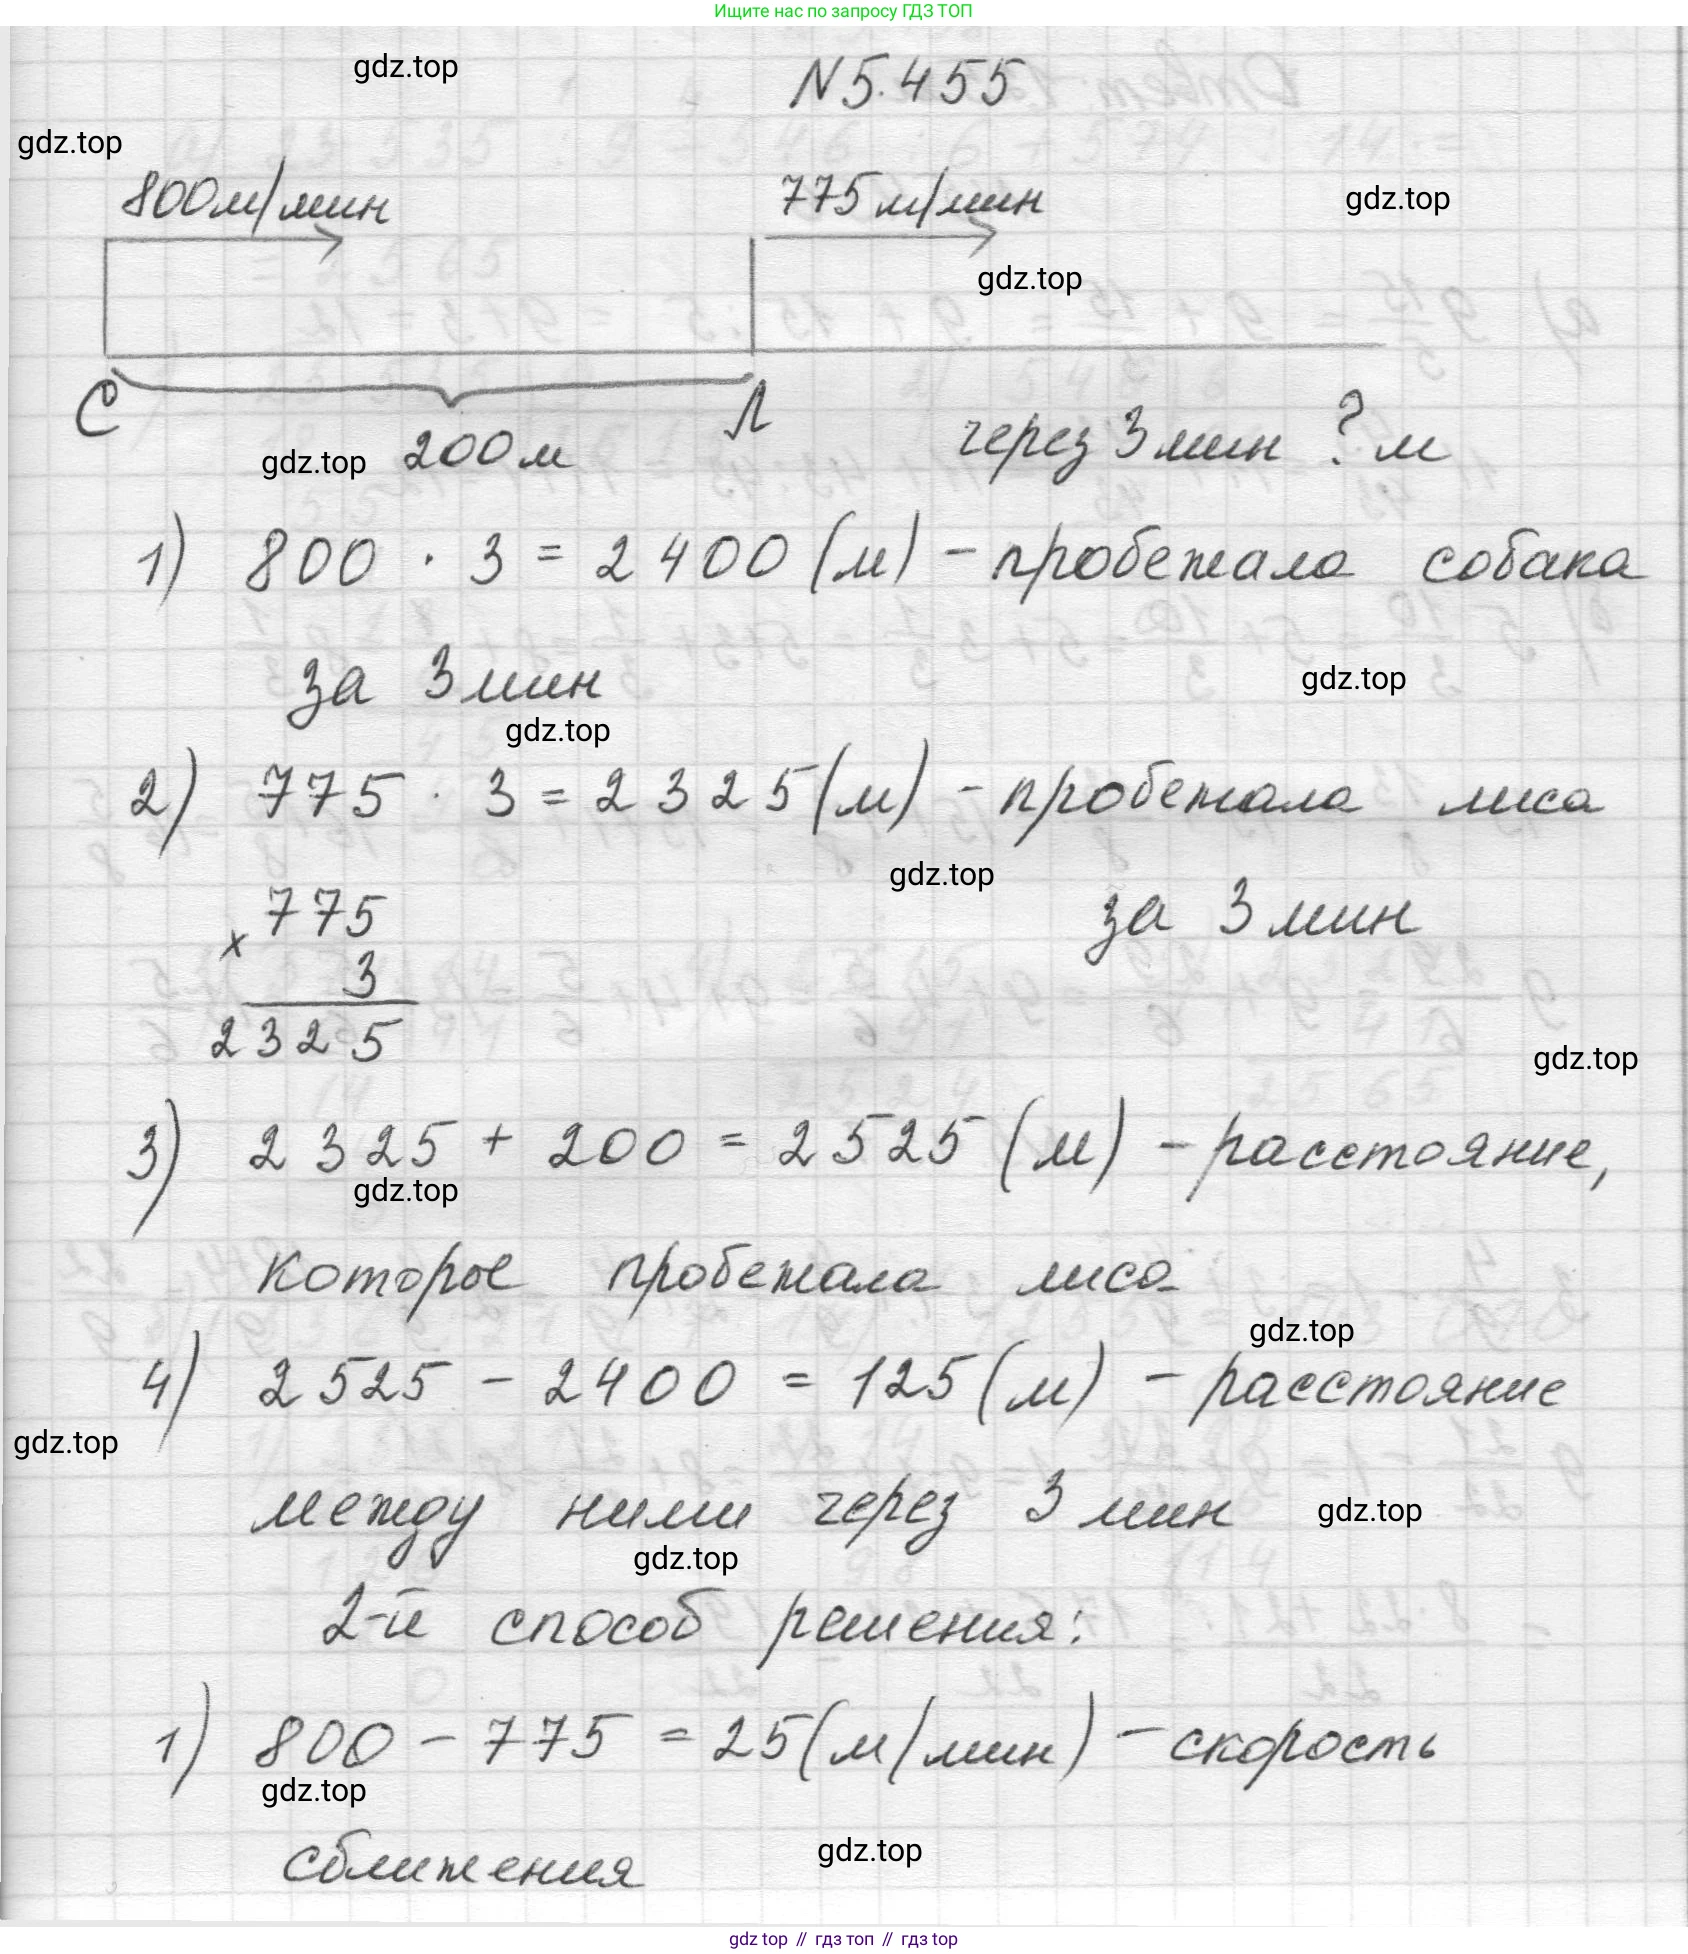 Ищите нас по запросу ГДЗ ТОП
gdz.top
N 5.455
gdz.top
800м/мин
775 м/мин
gdz.top
gdz.top
С
Л
gdz.top
200м
через 3 мин ? м
1) 800 · 3 = 2400 (м) - пробежала собака
за 3 мин
gdz.top
gdz.top
2) 775 · 3 = 2325 (м) - пробежала лиса
gdz.top
за 3 мин
× 775
3
2325
gdz.top
3) 2325 + 200 = 2525 (м) - расстояние,
gdz.top
которое пробежала лиса
gdz.top
4) 2525 - 2400 = 125 (м) - расстояние
gdz.top
между ними через 3 мин
gdz.top
gdz.top
2-й способ решения:
1) 800 - 775 = 25 (м/мин) - скорость
gdz.top
сближения
gdz.top
gdz top // гдз топ // gdz top